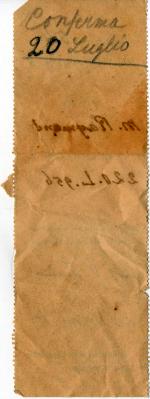 Conferma
20 Luglio
M. Raymond
220.L.956